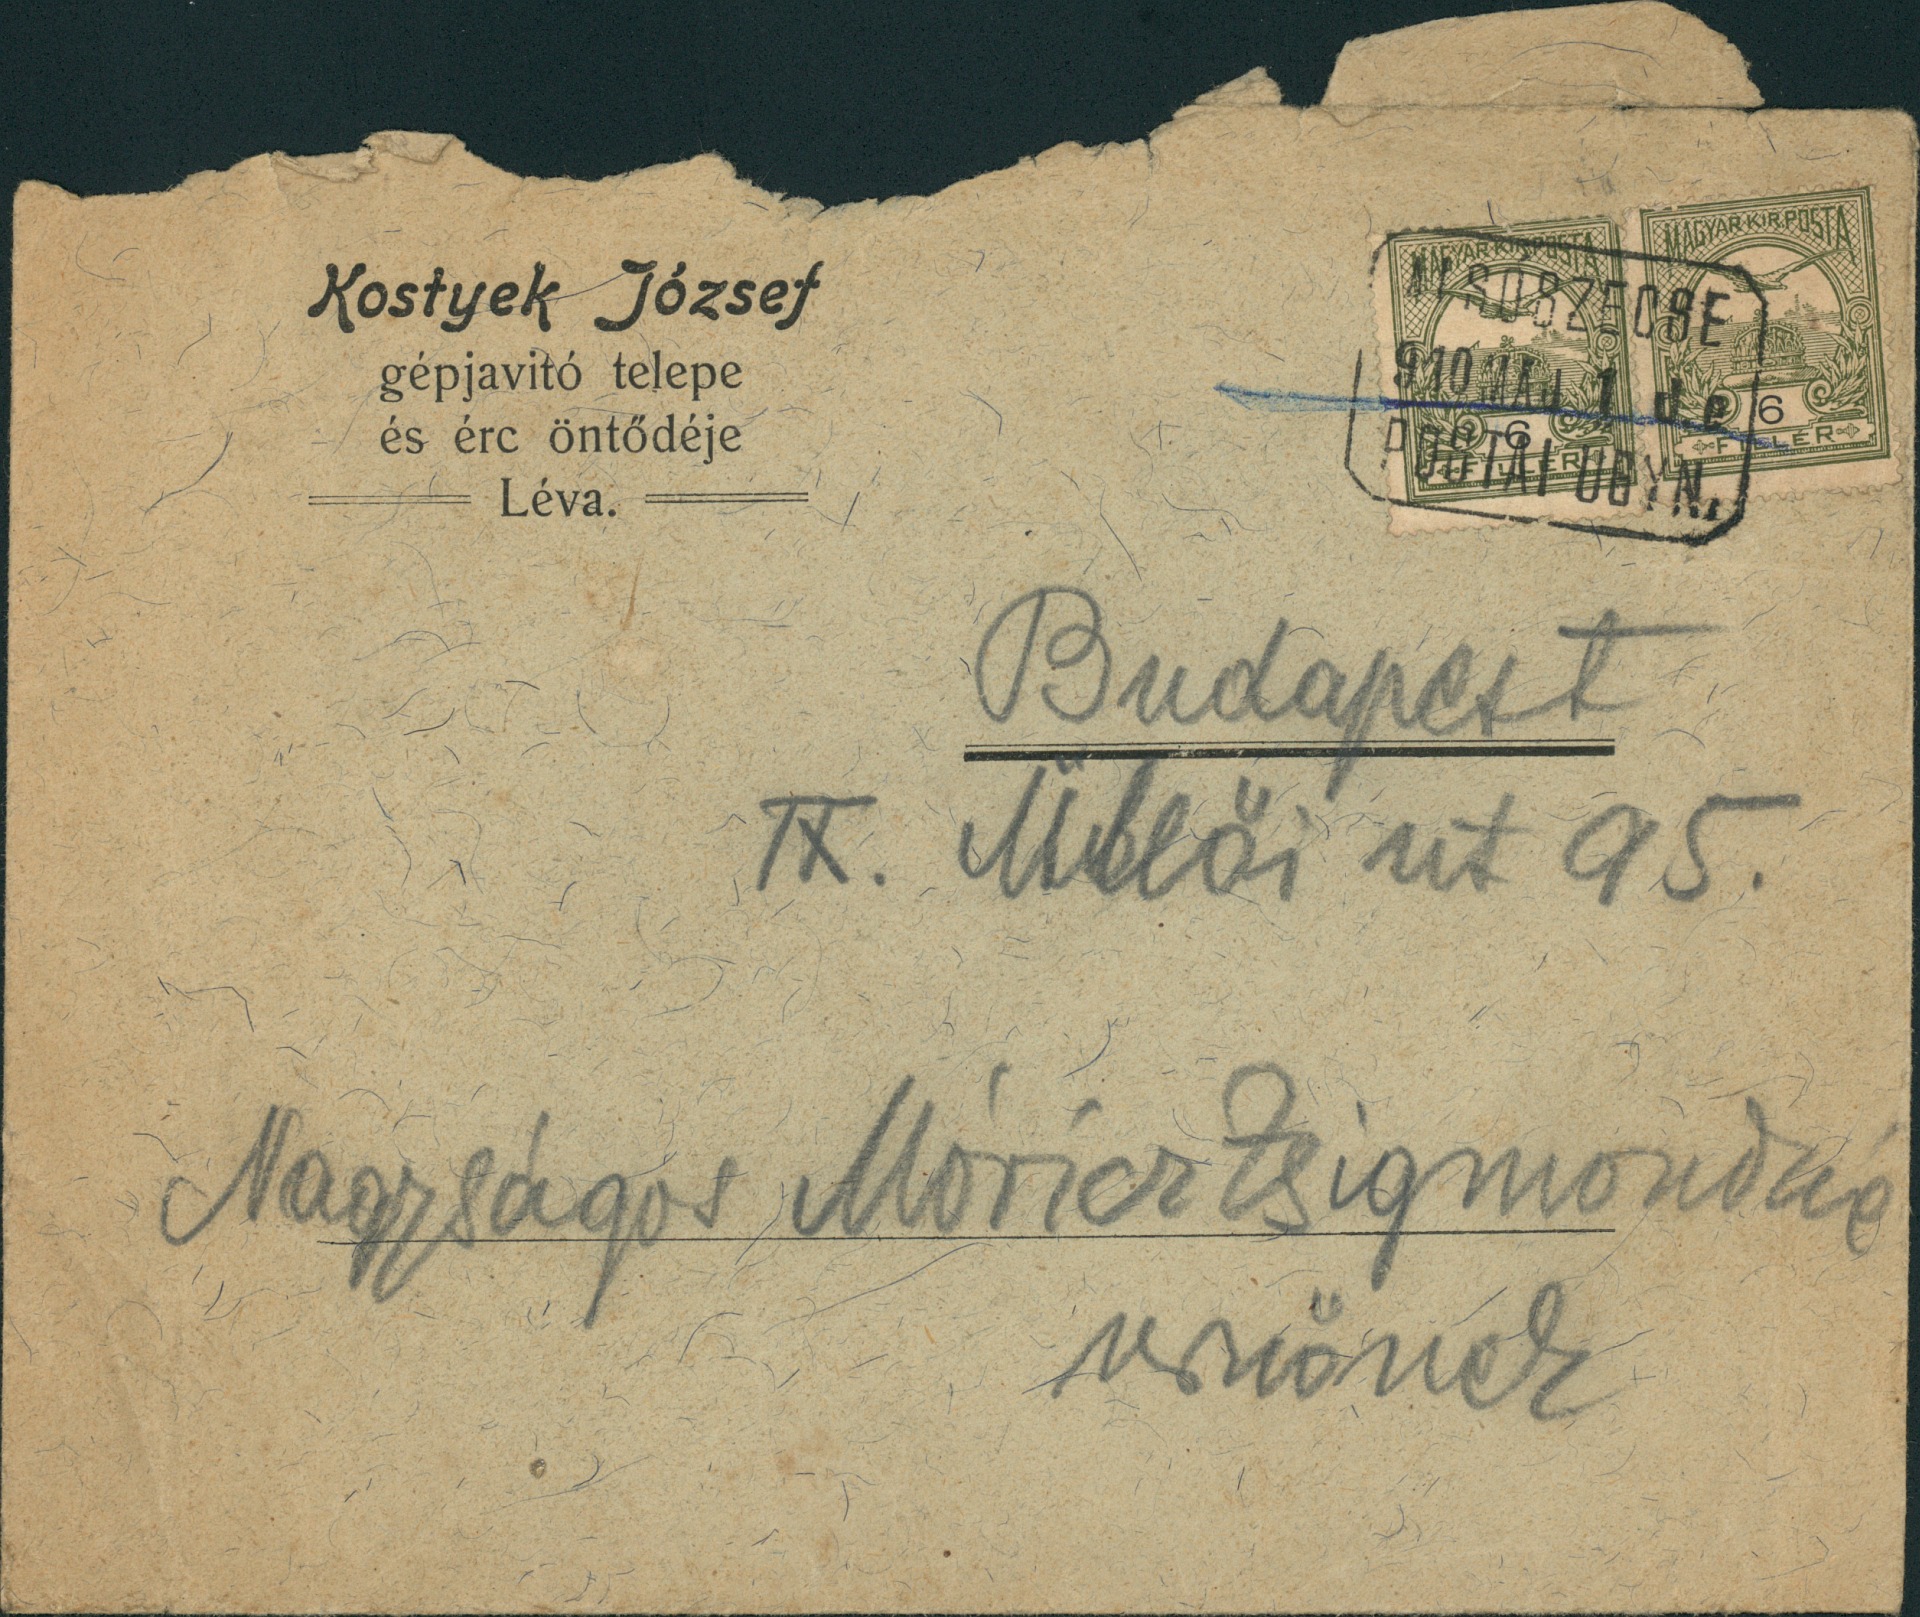 Kostyek József
gépjavitó telepe
és érc öntődéje
Léva.
MAGYAR·KIR·POSTA
6
FILLÉR
MAGYAR·KIR·POSTA
6
FILLÉR
ALSÓSZECSE
910 MÁJ 1 d.e
POSTAI ÜGYN.
Budapest
IX. Üllői út 95.
Nagyságos Móricz Zsigmondné
urnőnek